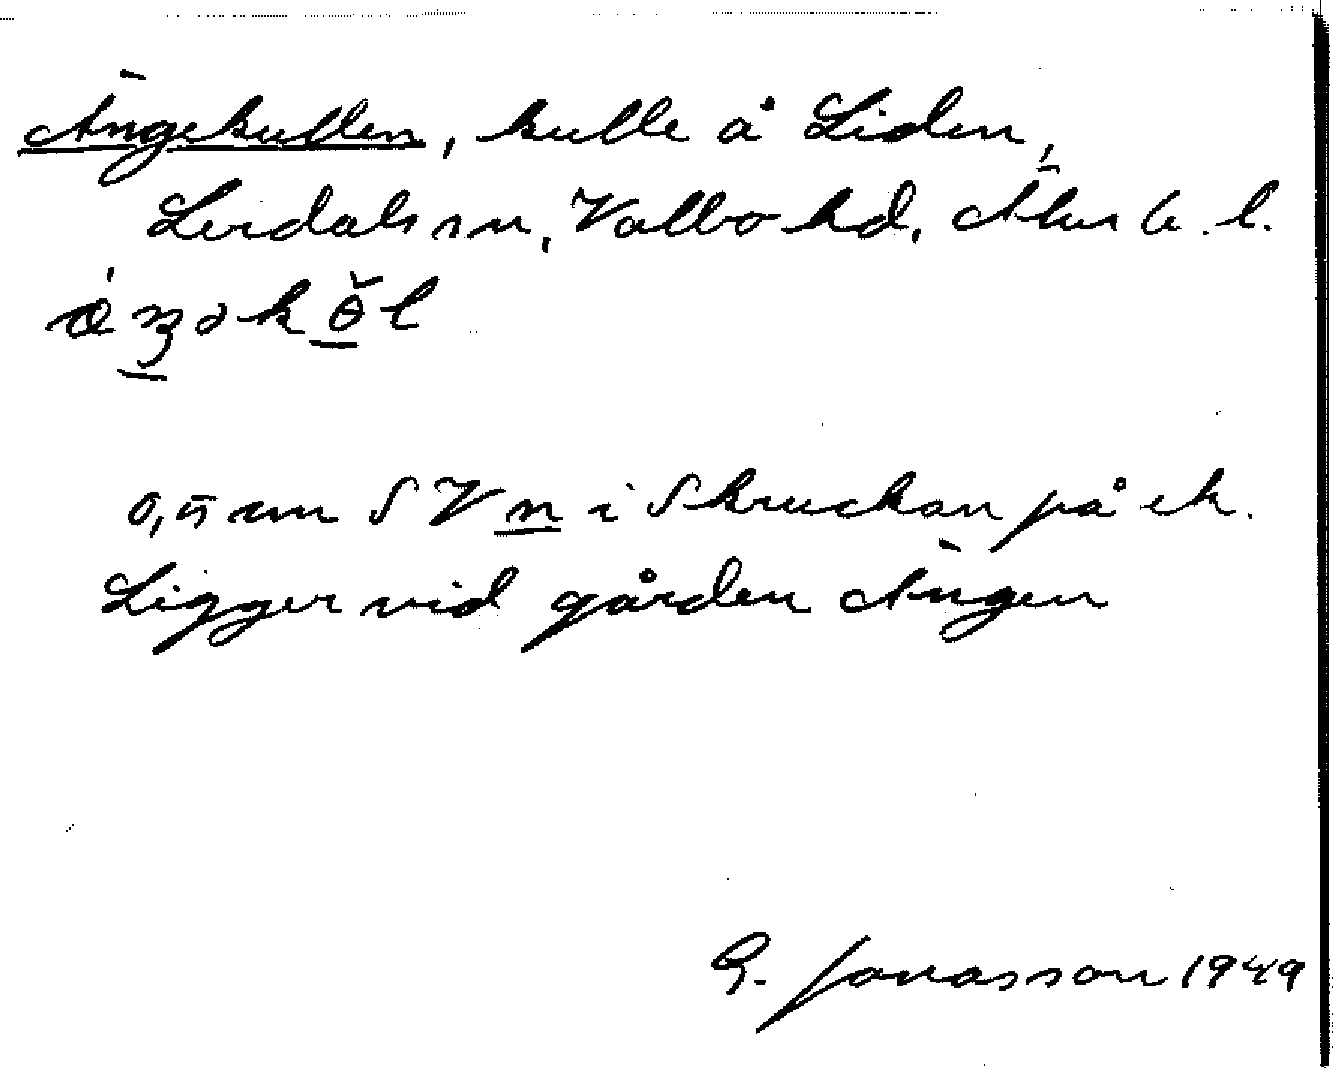 Ängekullen, kulle å Liden,
Lerdals sn, Valbo hd, Älvsb. l.
0,5 cm SV n i Skruckan på ek.
Ligger vid gården Ängen
G. Jonasson 1949